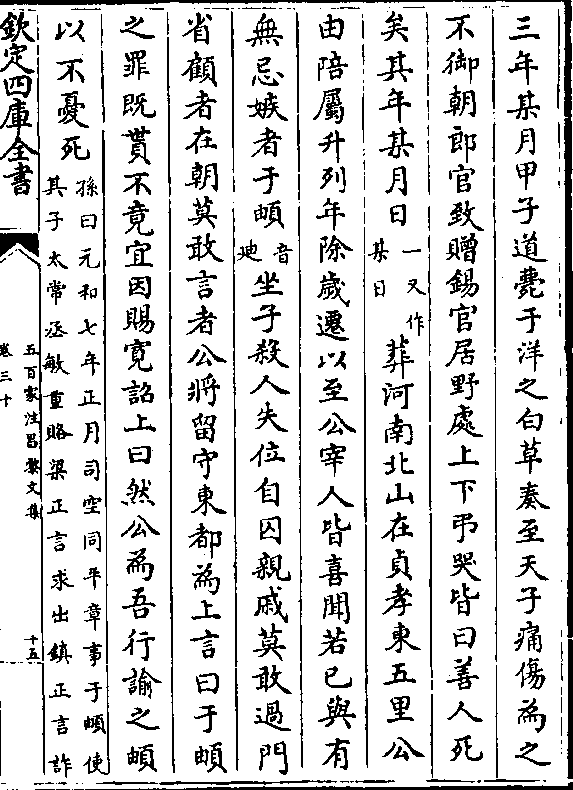 三年某月甲子道薨于洋之白草奏至天子痛傷為之
不御朝郎官致贈錫官居野處上下弔哭皆曰善人死
矣其年某月日一又作某日葬河南北山在貞孝東五里公
由陪屬升列年除歲遷以至公宰人皆喜聞若已與有
無忌嫉者于頔音地坐子殺人失位自囚親戚莫敢過門
省顧者在朝莫敢言者公將留守東都為上言曰于頔
之罪既貰不竟宜因賜寛詔上曰然公為吾行諭之頔
以不憂死孫曰元和七年正月司空同平章事于頔使其子太常丞敏重賂梁正言求出鎮正言詐
欽定四庫全書
五百家注昌黎文集
卷三十
十五